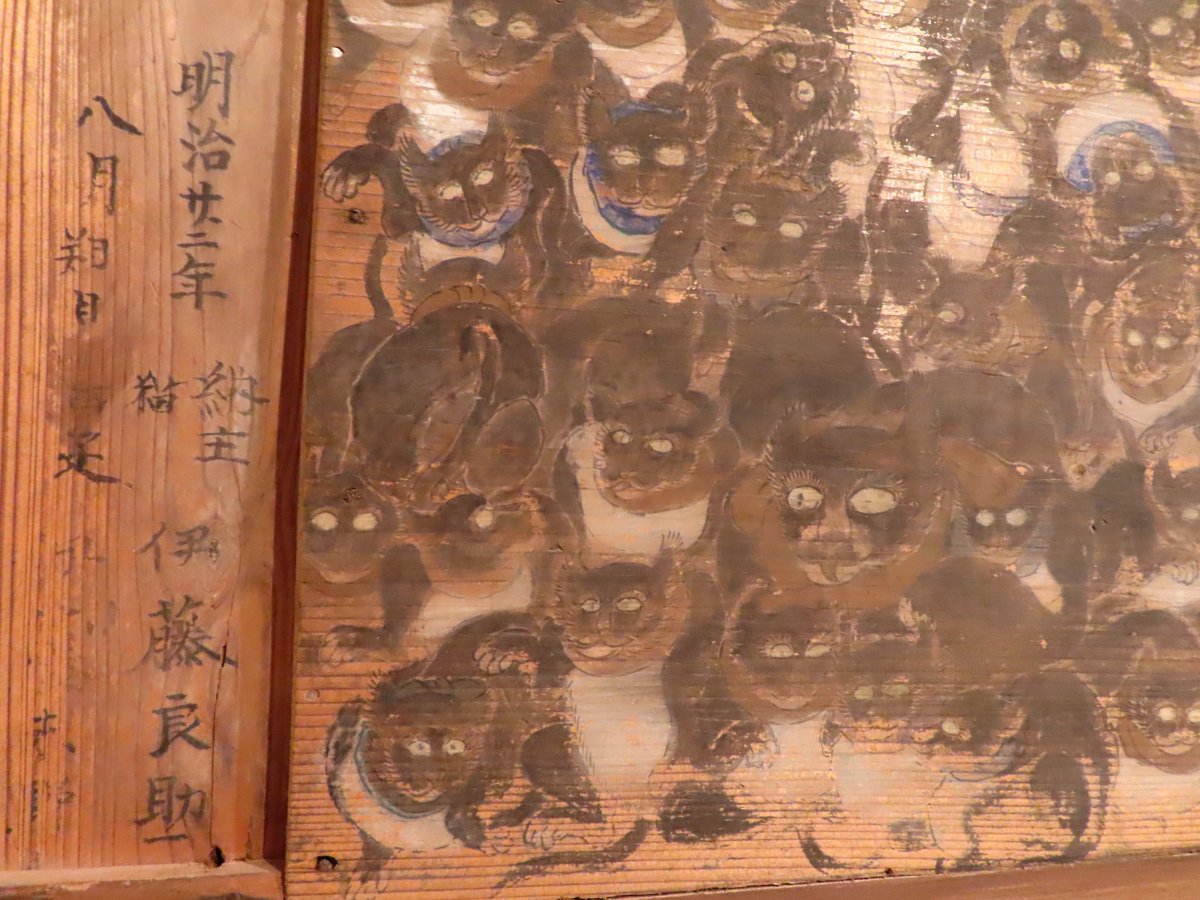 明治廿二年
八月朔日
納主
猫
伊藤良助